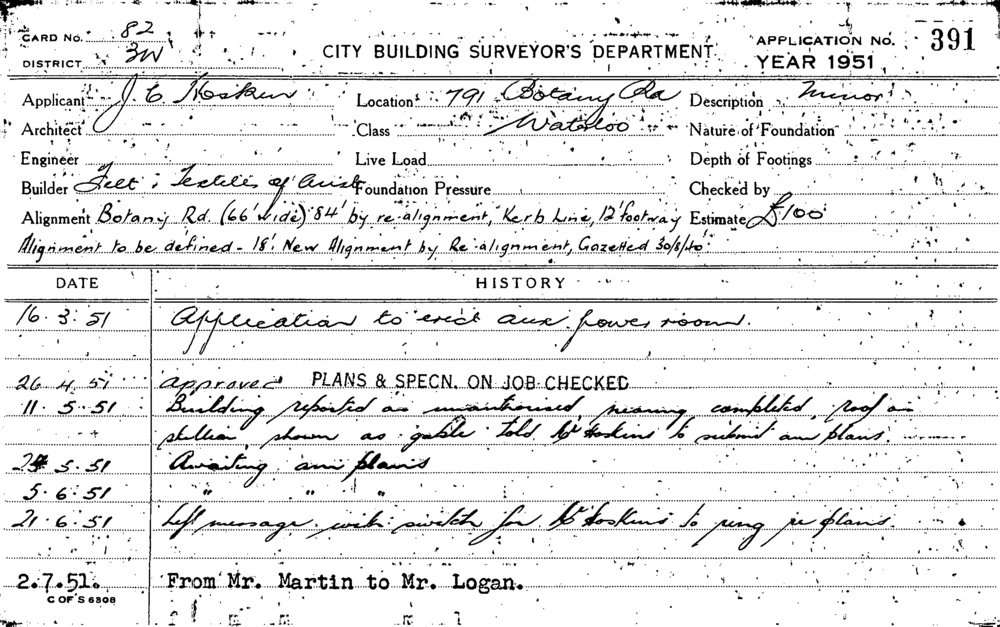 CARD No. 82
DISTRICT 3W
CITY BUILDING SURVEYOR'S DEPARTMENT
APPLICATION No. 391
YEAR 1951
Applicant J. C Hosken Location 791 Botany Rd Description Minor
Architect Class Waterloo Nature of Foundation
Engineer Live Load Depth of Footings
Builder Felt & Textiles of Aust Foundation Pressure Checked by
Alignment Botany Rd. (66' wide) 84' by re-alignment, Kerb Line, 12' footway Estimate £100
Alignment to be defined - 18'. New Alignment by Re-alignment, Gazetted 30/8/40
DATE HISTORY
16.3.51 Application to erect aux. power room.
26.4.51 approved PLANS & SPECN. ON JOB CHECKED
11.5.51 Building reported as unauthorised, nearing completed, roof as
skillion, shown as gable told Mr Hoskins to submit am plans.
24.5.51 Awaiting am plans
5.6.51 " " "
21.6.51 Left message with switch for Mr Hoskins to ring re plans
2.7.51. From Mr. Martin to Mr. Logan.
C OF S 6308